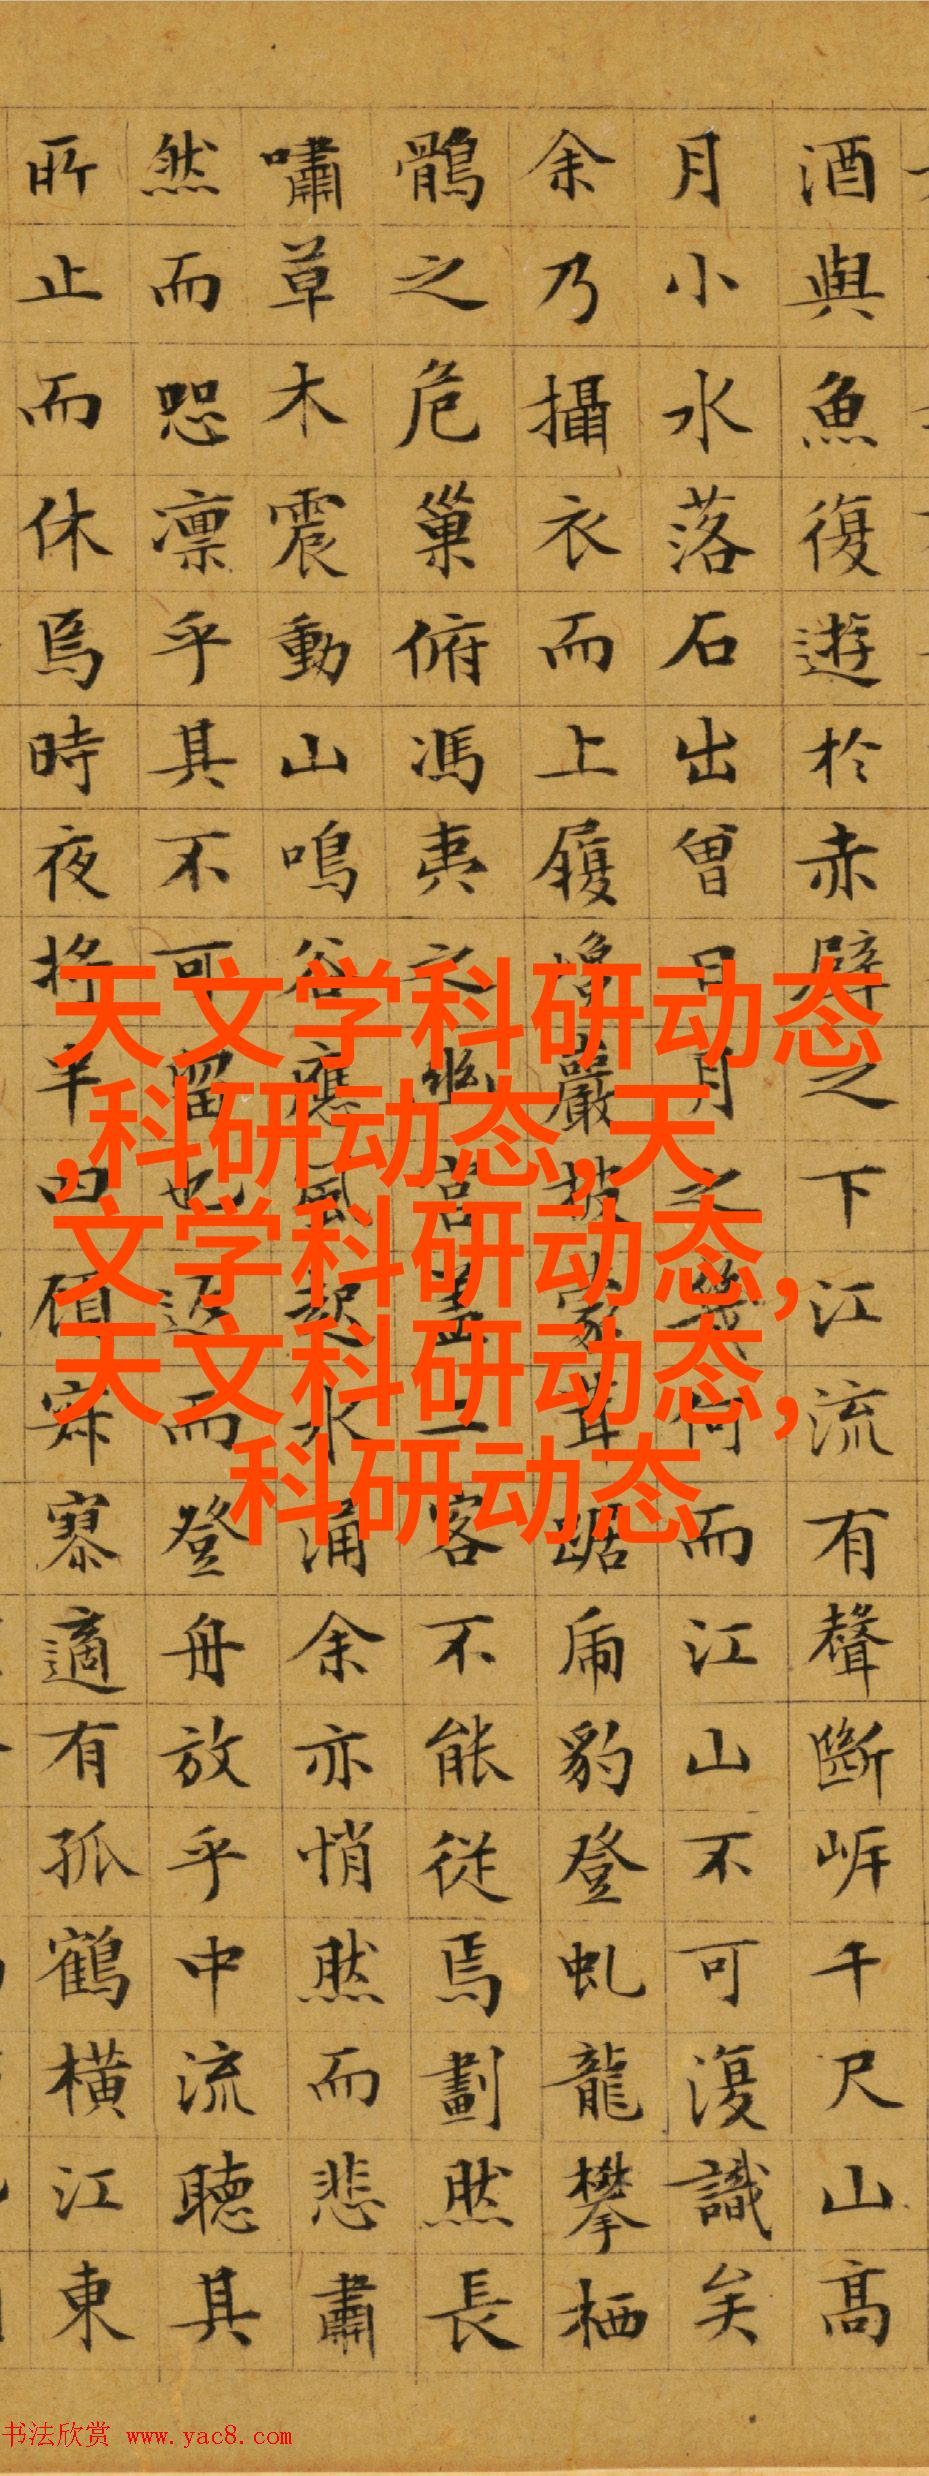 酒與魚復遊於赤壁之下江流有聲斷岸千尺山高
月小水落石出曾日月之幾何而江山不可復識矣
余乃攝衣而上履巉巖披蒙茸踞虎豹登虬龍攀栖
鶻之危巢俯馮夷之幽宮蓋二客不能從焉劃然長
嘯草木震動山鳴谷應風起水涌余亦悄然而悲肅
然而恐凛乎其不可留也返而登舟放乎中流聽其
所止而休焉時夜將半四顧寂寥適有孤鶴橫江東
天文学科研动态
,科研动态,天
文学科研动态,
天文科研动态,
科研动态
书法欣赏 www.yac8.com